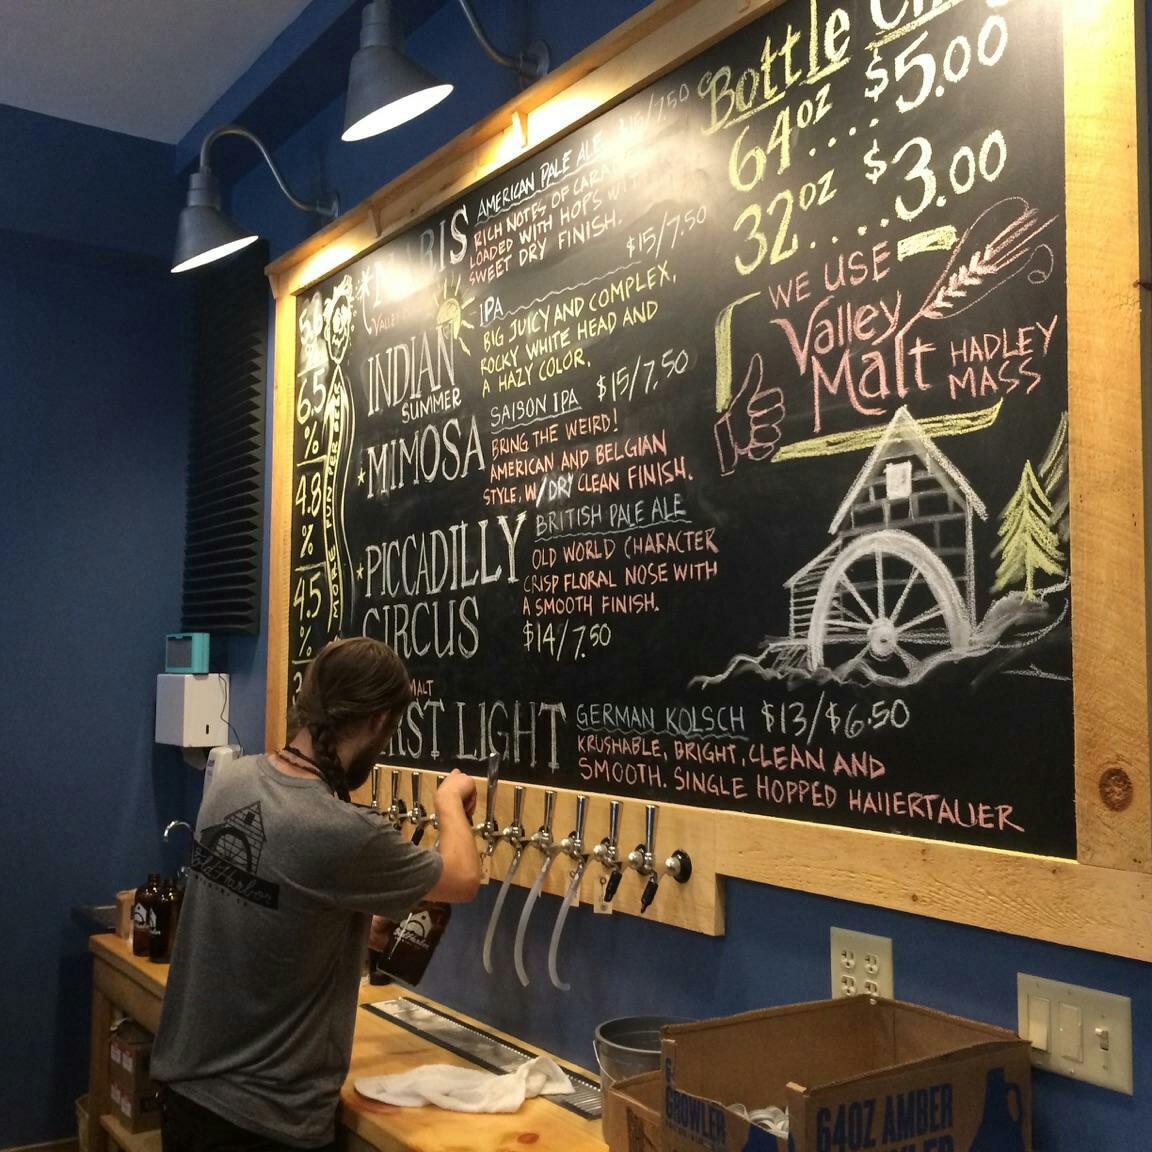 Bottle
64oz ... $5.00
32oz .... $3.00
WE USE
Valley
Malt
HADLEY
MASS
AMERICAN PALE ALE $15/7.50
RICH NOTES OF
LOADED WITH HOPS
SWEET DRY FINISH.
6.5
%
4.8
%
4.5
%
MORE FUN
INDIAN
SUMMER
IPA $15/7.50
BIG JUICY AND COMPLEX,
ROCKY WHITE HEAD AND
A HAZY COLOR.
MIMOSA
SAISON IPA $15/7.50
BRING THE WEIRD!
AMERICAN AND BELGIAN
STYLE, W/DRY CLEAN FINISH.
PICCADILLY
CIRCUS
BRITISH PALE ALE
OLD WORLD CHARACTER
CRISP FLORAL NOSE WITH
A SMOOTH FINISH.
$14/7.50
MALT
LIGHT
GERMAN KOLSCH $13/$6.50
KRUSHABLE, BRIGHT, CLEAN AND
SMOOTH. SINGLE HOPPED HAllERTAUER
GROWLER
64OZ AMBER